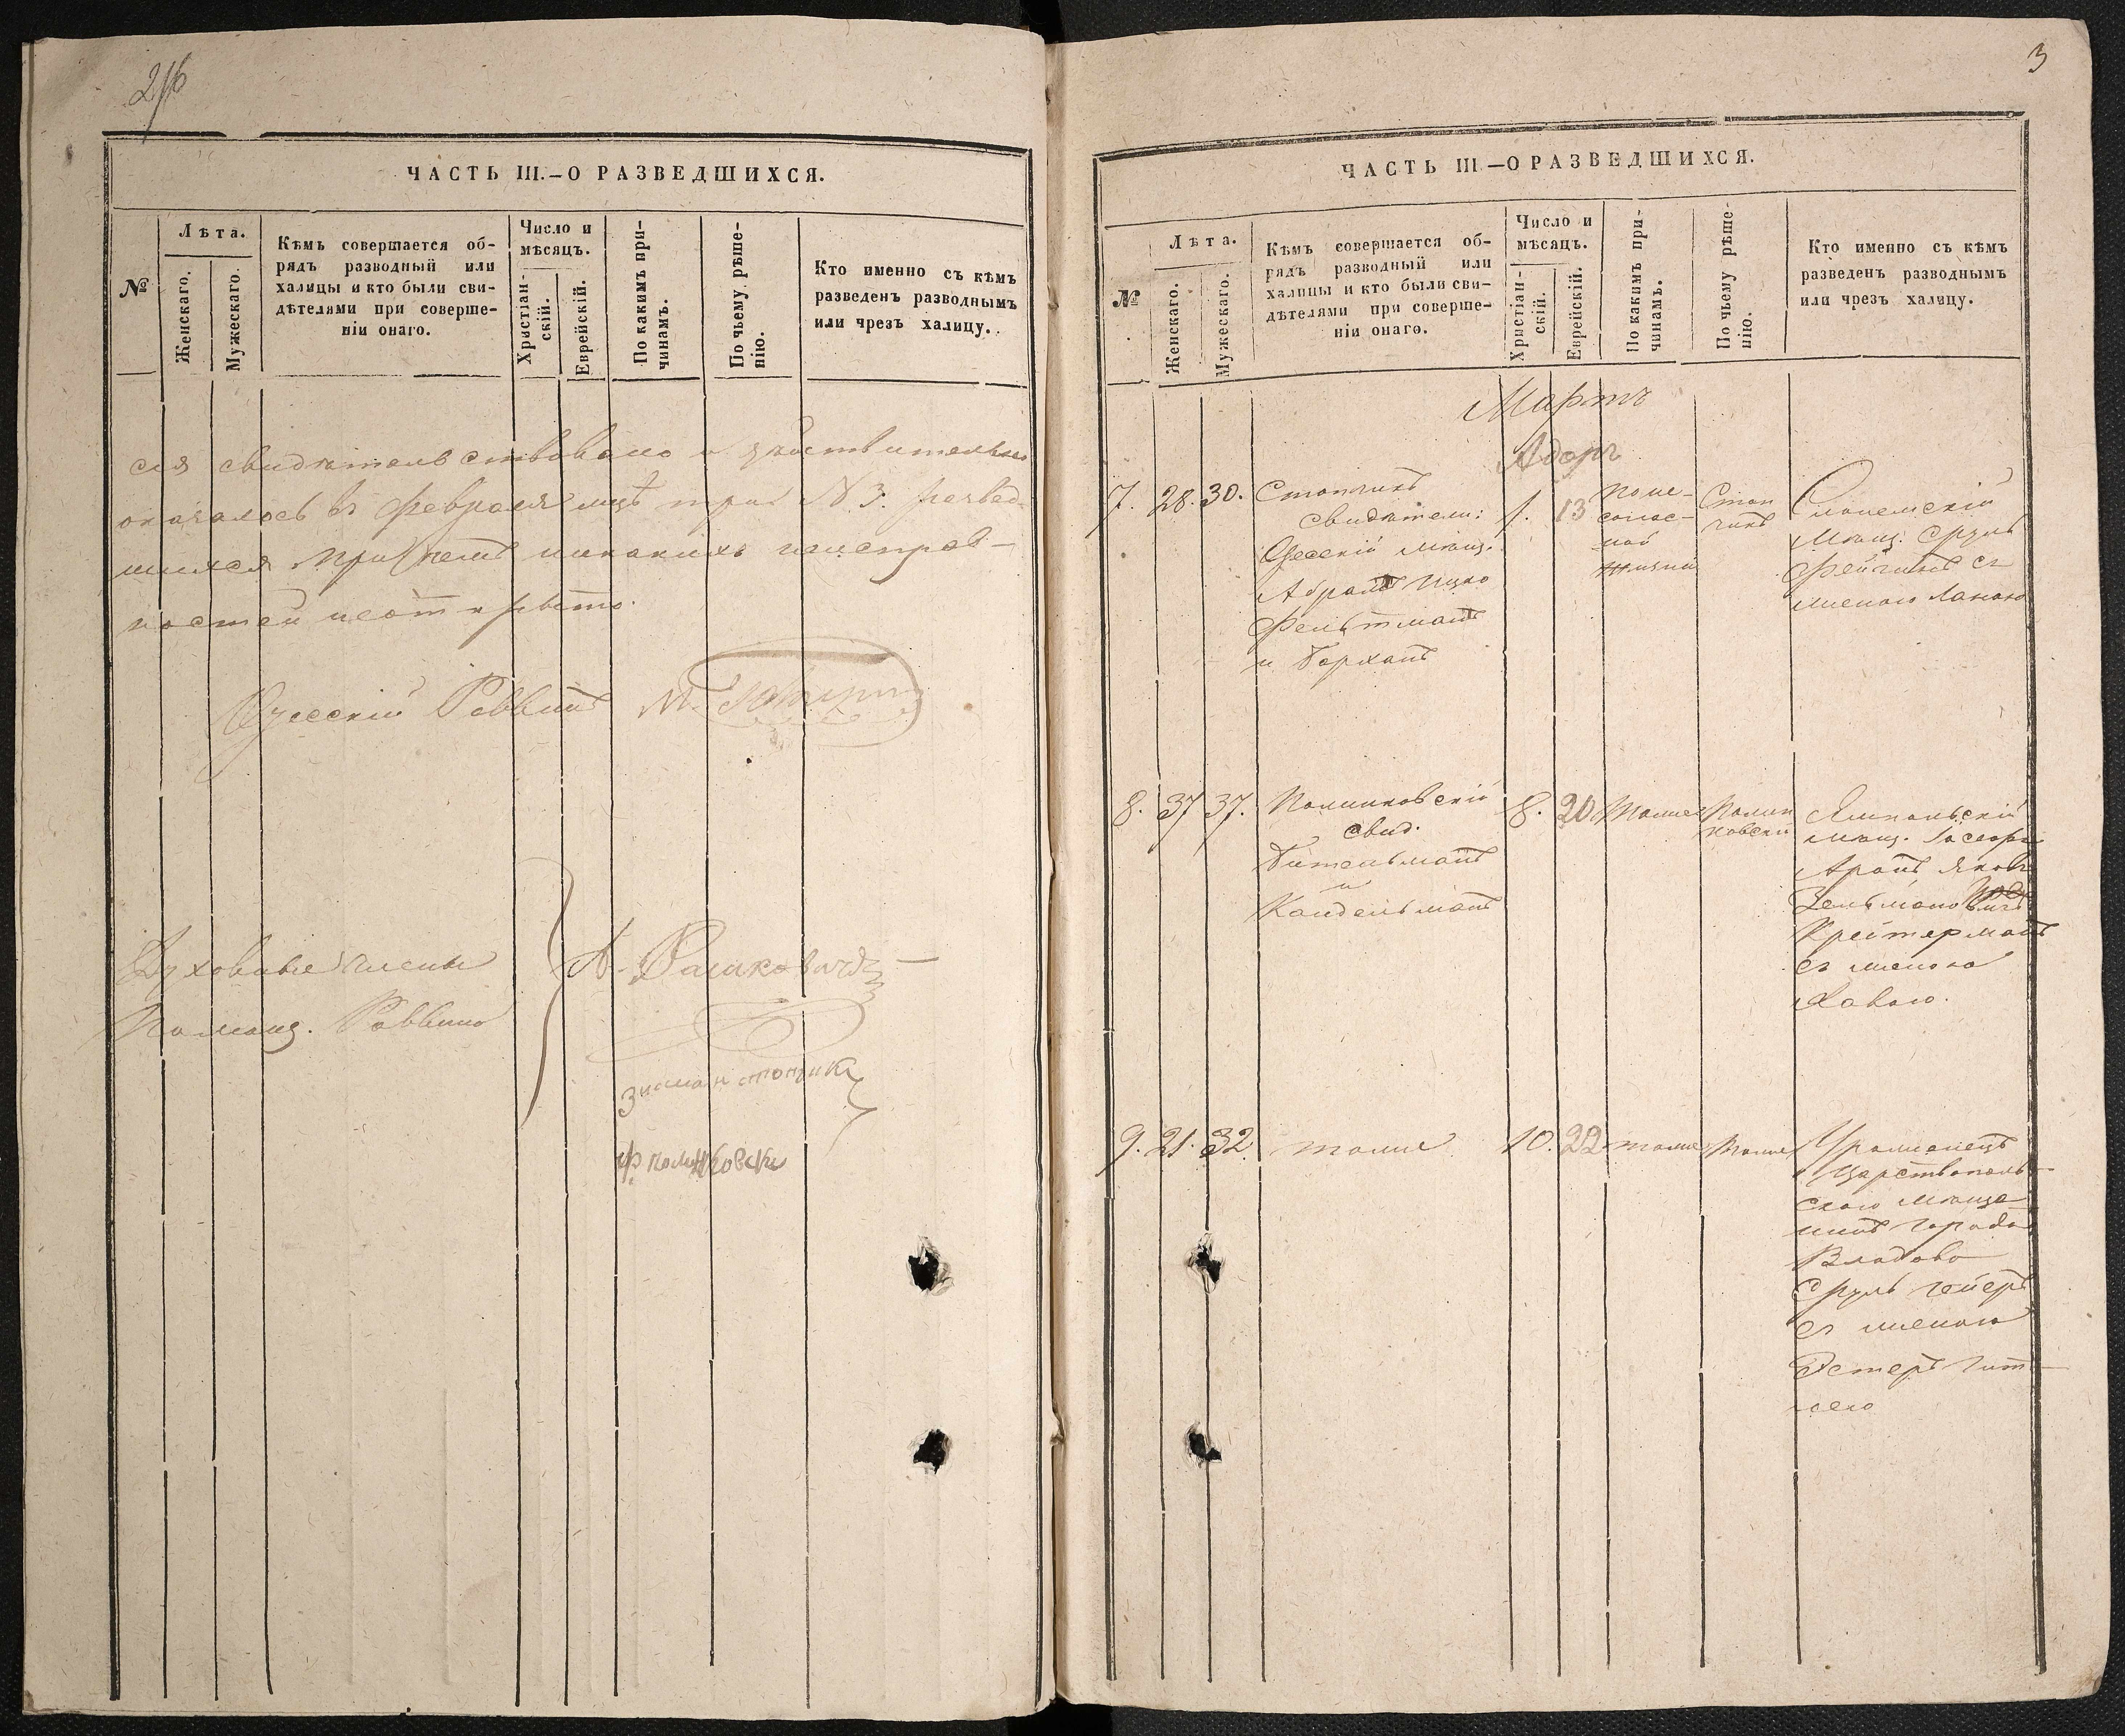 2/16
ЧАСТЬ III.—О РАЗВЕДШИХСЯ.
№
Лѣта.
Женскаго.
Мужескаго.
Кѣмъ совершается об-
рядъ разводный или
халицы и кто были сви-
дѣтелями при соверше-
ніи онаго.
Число и
мѣсяцъ.
Христіан-
скій.
Еврейскій.
По какимъ при-
чинамъ.
По чьему рѣше-
нію.
Кто именно съ кѣмъ
разведенъ разводнымъ
или чрезъ халицу.
сія свидѣтельствовано и дѣйствительно
оказалось въ Февралѣ мцѣ три № 3. развед-
шихся при чемъ никакихъ неисправ-
ностей не открыто.
Одесскій Раввинъ
Духовные члены
Помощ. Раввина
3
ЧАСТЬ III.—О РАЗВЕДШИХСЯ.
№
Лѣта.
Женскаго.
Мужескаго.
Кѣмъ совершается об-
рядъ разводный или
халицы и кто были сви-
дѣтелями при соверше-
ніи онаго.
Число и
мѣсяцъ.
Христіан-
скій.
Еврейскій.
По какимъ при-
чинамъ.
По чьему рѣше-
нію.
Кто именно съ кѣмъ
разведенъ разводнымъ
или чрезъ халицу.
Мартъ
Адоръ
7. 28. 30.
Стопчикъ
свидѣтели:
Одесскій мѣщ.
Абрамъ Ицко
Фельтманъ
и Борханъ
1. 13
по не-
соглас-
ной
жизни
Стоп
чикъ
мѣщ. Сруль
Фейгинъ съ
женою
8. 37 37.
Полинковскій
свид.
Гительманъ
и
Кандельманъ
8. 20 тоже
Полин
ковскій
Ямпольскій
мѣщ. Іосефъ
Аронъ Яковъ
Зельмановичъ
Крейтерманъ
съ женою
Хавою.
9. 21. 32. тоже 10. 22 тоже тоже
Уроженецъ
Царства поль-
скаго мѣща-
нинъ города
Владова
Сруль Гейеръ
съ женою
Эстеръ Гит-
лею